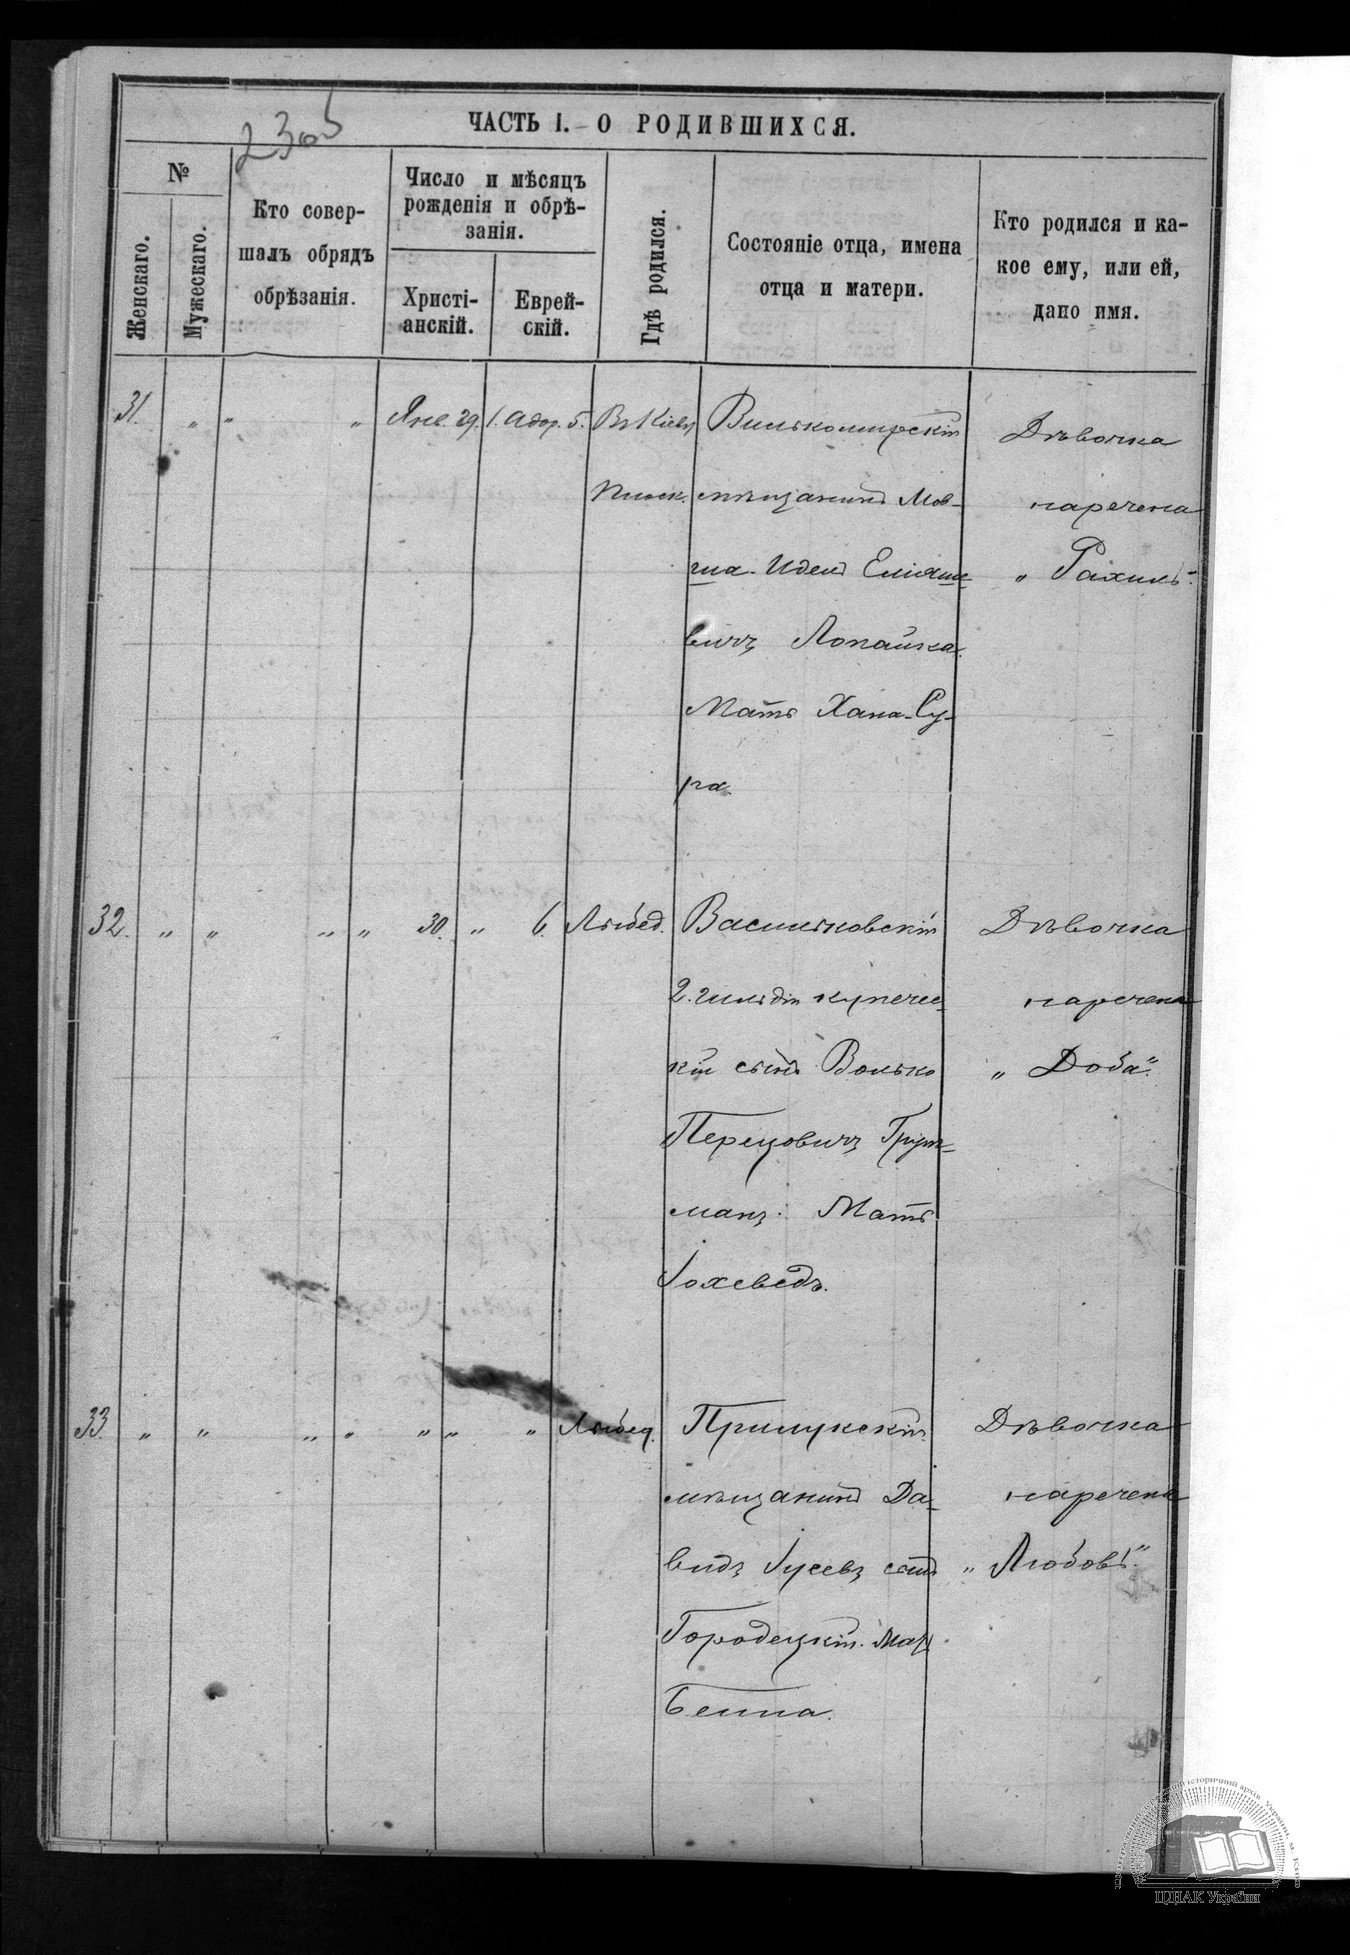 2305
ЧАСТЬ I. – О РОДИВШИХСЯ.
№
Женскаго.
Мужескаго.
Кто совер-
шалъ обрядъ
обрѣзанія.
Число и мѣсяцъ
рожденія и обрѣ-
занія.
Христі-
анскій.
Еврей-
скій.
Гдѣ родился.
Состояніе отца, имена
отца и матери.
Кто родился и ка-
кое ему, или ей,
дано имя.
31. „ „ „ Янв. 29. Адар. 5. Въ Кіевѣ
Плоск.
Вилькомирскій
мѣщанинъ Мов-
ша-Идель Еліяше-
вичъ Лопайка.
Мать Хана-Су-
ра.
Дѣвочка
наречена
„Рахиль“.
32. „ „ „ „ 30. „ 6. Лыбед.
Васильковскій
2. гильдіи купечес-
кій сынъ Волько
Перецовичъ
манъ. Мать
Іохеведъ.
Дѣвочка
наречена
„Доба“.
33. „ „ „ „ „ „ „ Лыбед.
Прилукскій
мѣщанинъ Да-
видъ Іусевъ сынъ
Городецкій. Мать
Бейла.
Дѣвочка
наречена
„Любовь“.
ЦДІАК України